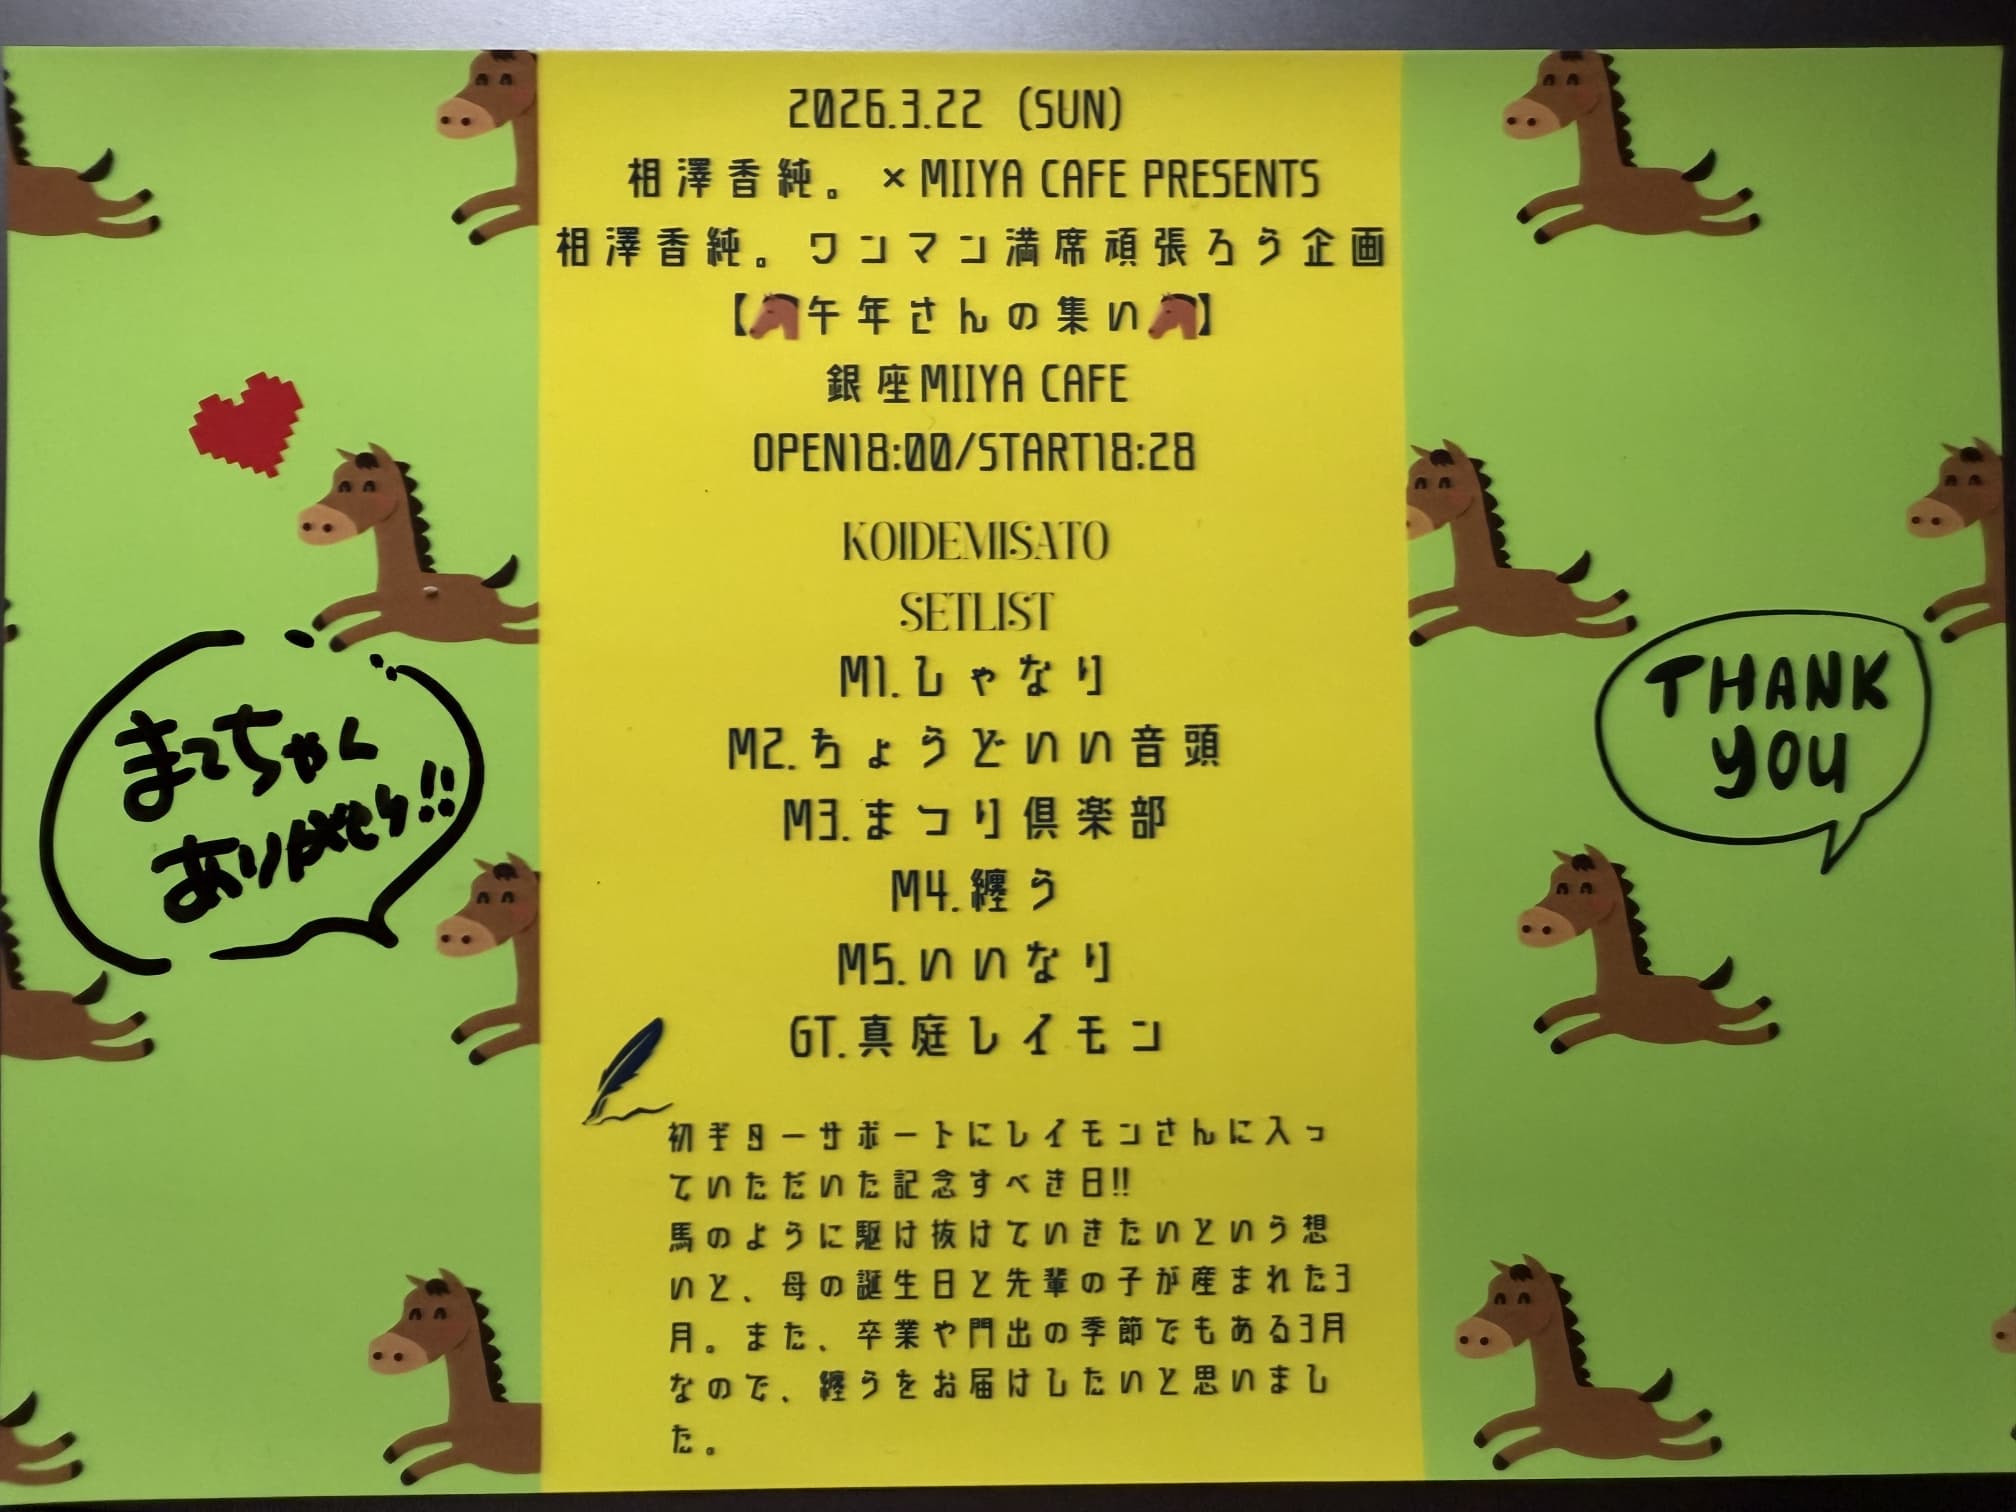 2026.3.22 (SUN)
相澤香純。 × MIIYA CAFE PRESENTS
相澤香純。ワンマン満席頑張ろう企画
【🐴午年さんの集い🐴】
銀座MIIYA CAFE
OPEN18:00/START18:28
KOIDEMISATO
SETLIST
M1.しゃなり
M2.ちょうどいい音頭
M3.まつり倶楽部
M4.纏う
M5.いいなり
GT.真庭レイモン
初ギターサポートにレイモンさんに入っ
ていただいた記念すべき日!!
馬のように駆け抜けていきたいという想
いと、母の誕生日と先輩の子が産まれた3
月。また、卒業や門出の季節でもある3月
なので、纏うをお届けしたいと思いまし
た。
まてちゃく
ありがとう!!
THANK
YOU